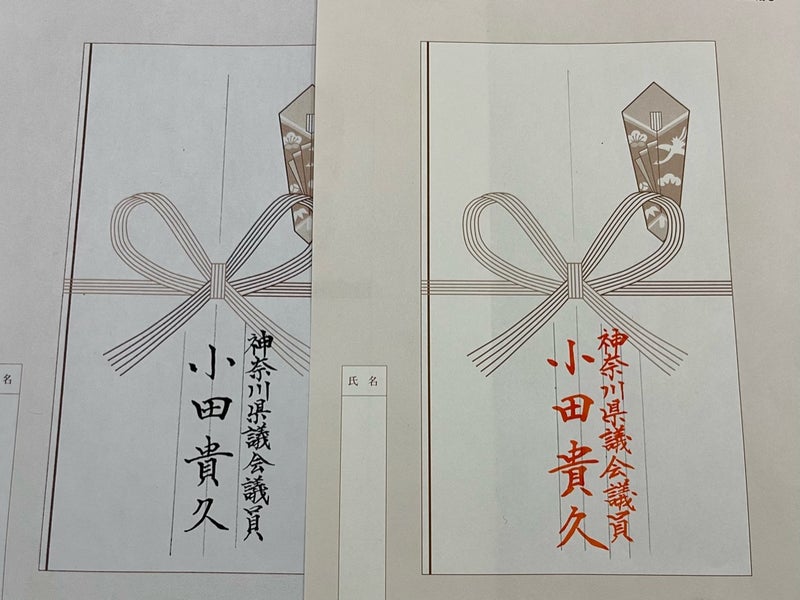 神奈川県議会議員
小田貴久
名
神奈川県議会議員
小田貴久
氏名